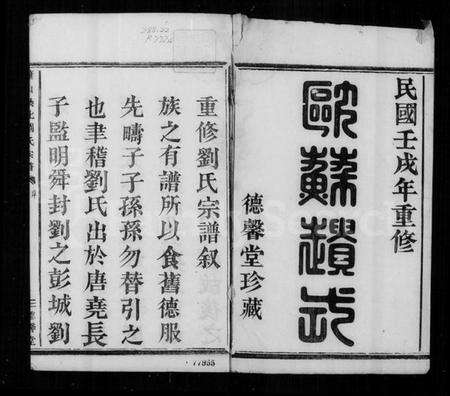 民國壬戌年重修
歐蘇遺式
德馨堂珍藏
重修劉氏宗譜叙
族之有譜所以食舊德服
先疇子子孫孫勿替引之
也聿稽劉氏出於唐堯長
子監明舜封劉之彭城劉
77955